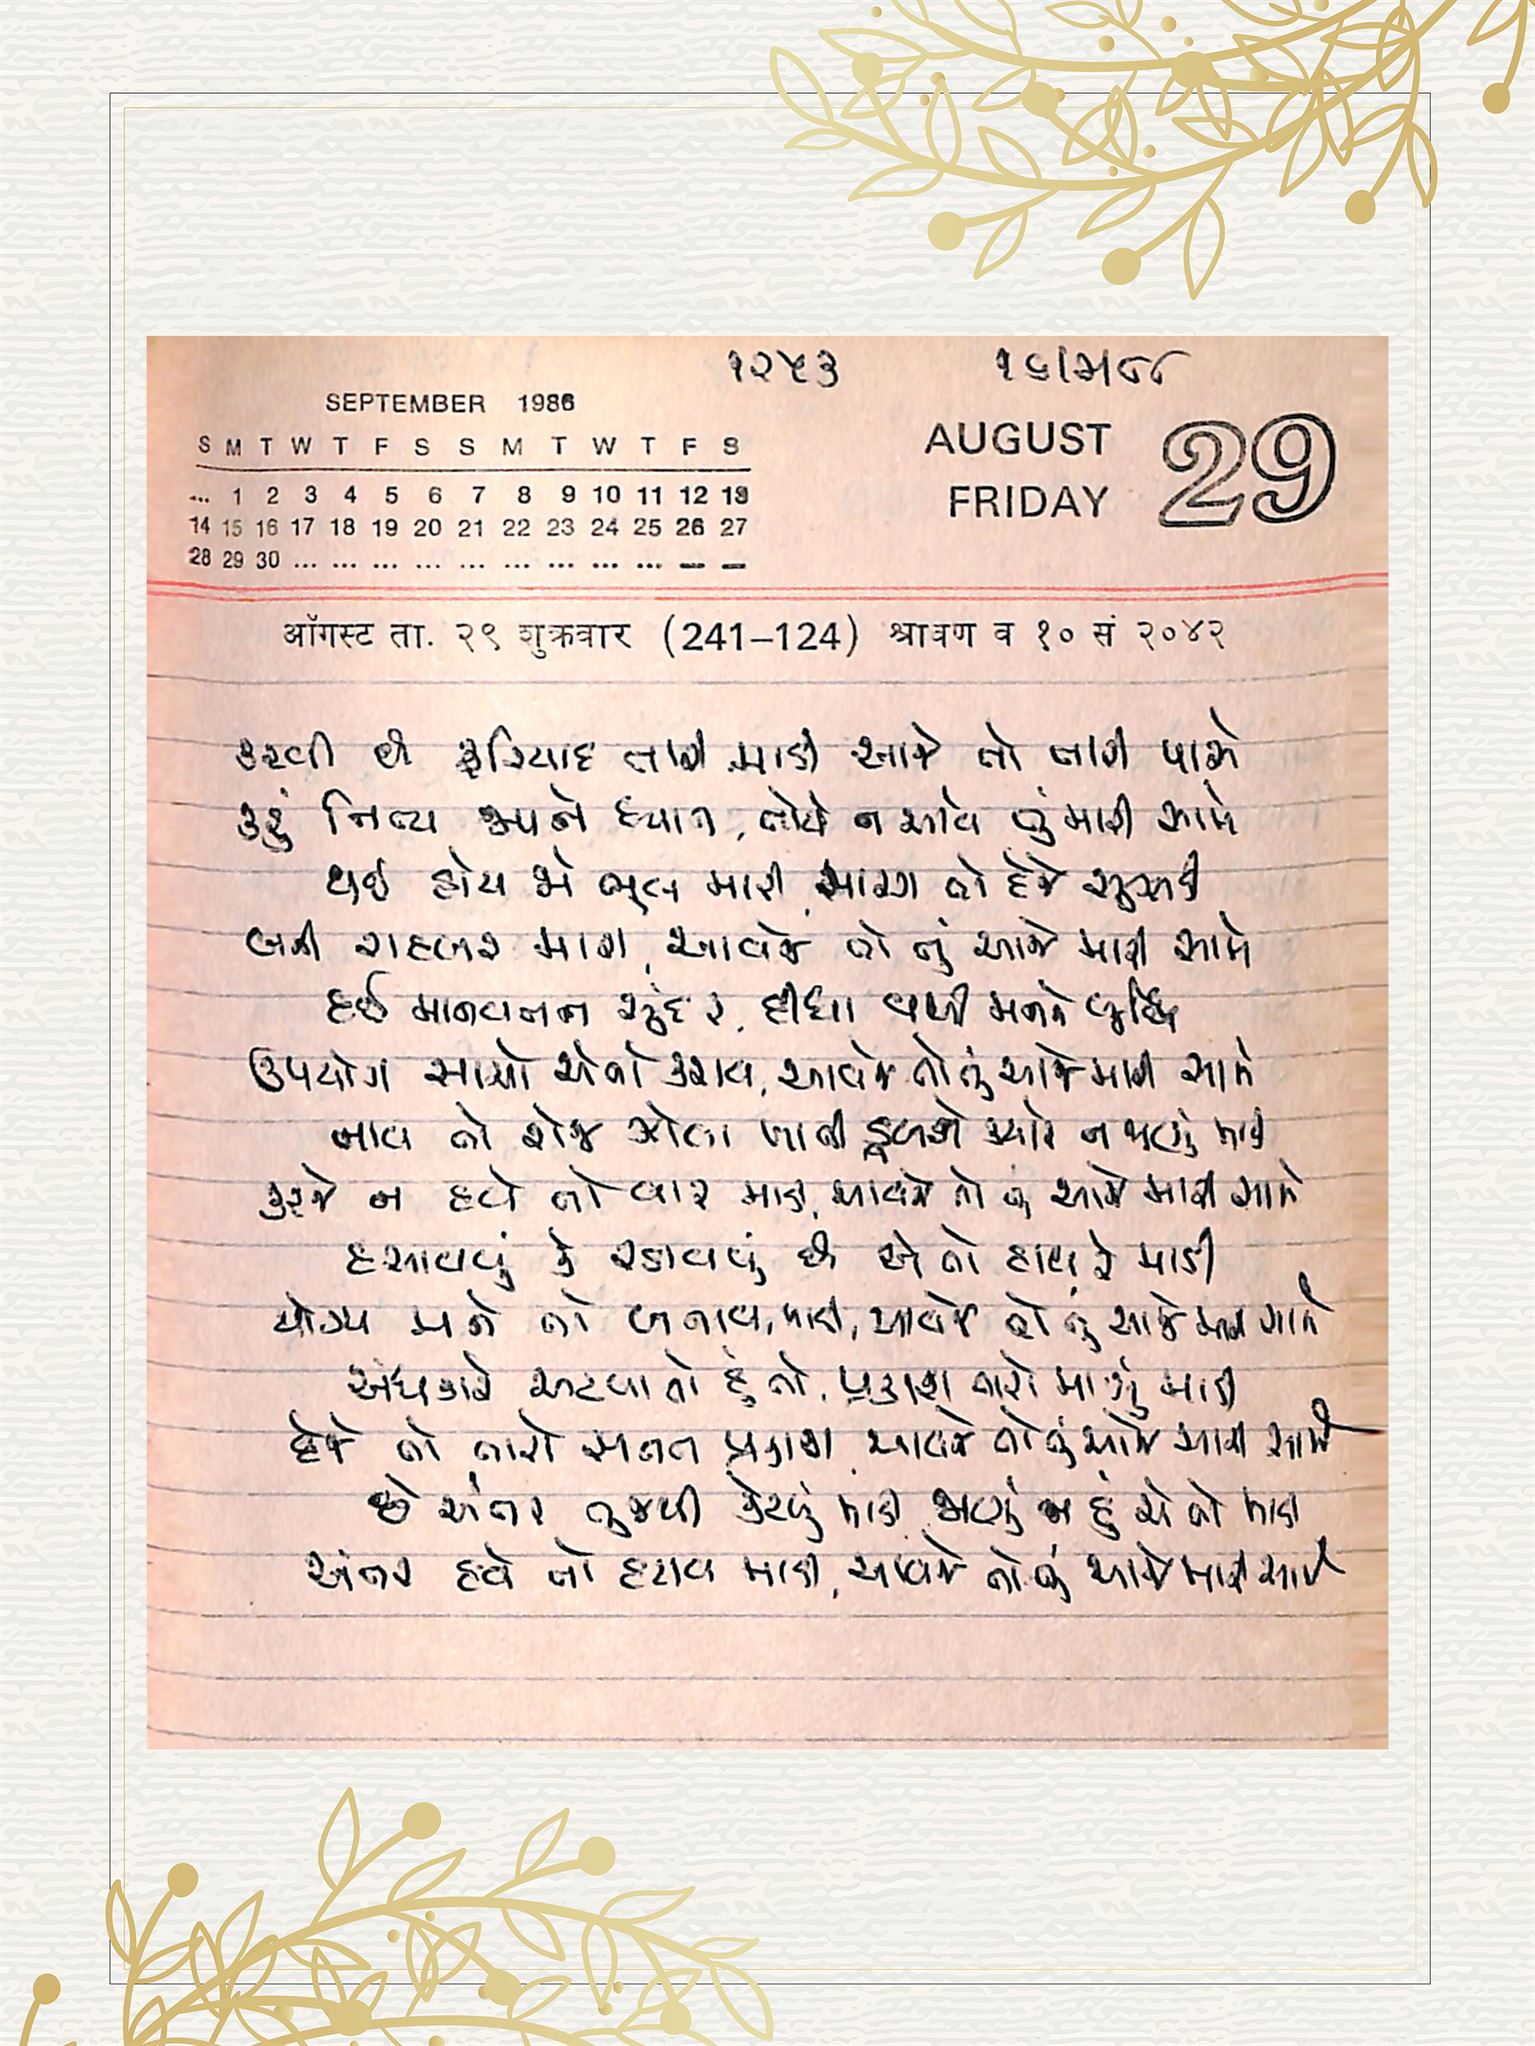 ૧૨૫૩
SEPTEMBER 1986
S M T W T F S S M T W T F S
... 1 2 3 4 5 6 7 8 9 10 11 12 13
14 15 16 17 18 19 20 21 22 23 24 25 26 27
28 29 30 ... ... ... ... ... ... ... ... ... — —
AUGUST
FRIDAY
29
ऑगस्ट ता. २९ शुक्रवार (241–124) श्रावण व १० सं २०४२
કરવી છે ફરિયાદ તારી માડી આજે તો તારી પાસે
કરું નિત્ય જપને ધ્યાન, તોયે ન આવે તું મારી સામે
થઈ હોય જો ભૂલ મારી, આજ તો દેજે સુઝાડી
બની રાહબર મારા, આવજે તો તું આજે મારી સામે
દઈ માનવતન સુંદર, દીધા વળી મનને બુદ્ધિ
ઉપયોગ સાચો એનો કરાવ, આવજે તો તું આજે મારી સામે
નાવ તો રોજ ઝોલા ખાતી ડૂબશે ક્યારે ન જાણું માડી
કરજે ન હવે તો વાર માડી, આવજે તો તું આજે મારી સામે
હસાવવું કે રડાવવું છે એ તો હાથ રે માડી
યોગ્ય મને તો બનાવ, માડી, આવજે તો તું આજે મારી સામે
અંધકારે અટવાતો હું તો, પ્રકાશ તારો માગું માડી
દેજે તો તારો સતત પ્રકાશ, આવજે તો તું આજે મારી સામે
છે અંતર તુજથી કેટલું માડી, જાણું ન હું એ તો માડી
અંતર હવે તો હટાવ માડી, આવજે તો તું આજે મારી સામે